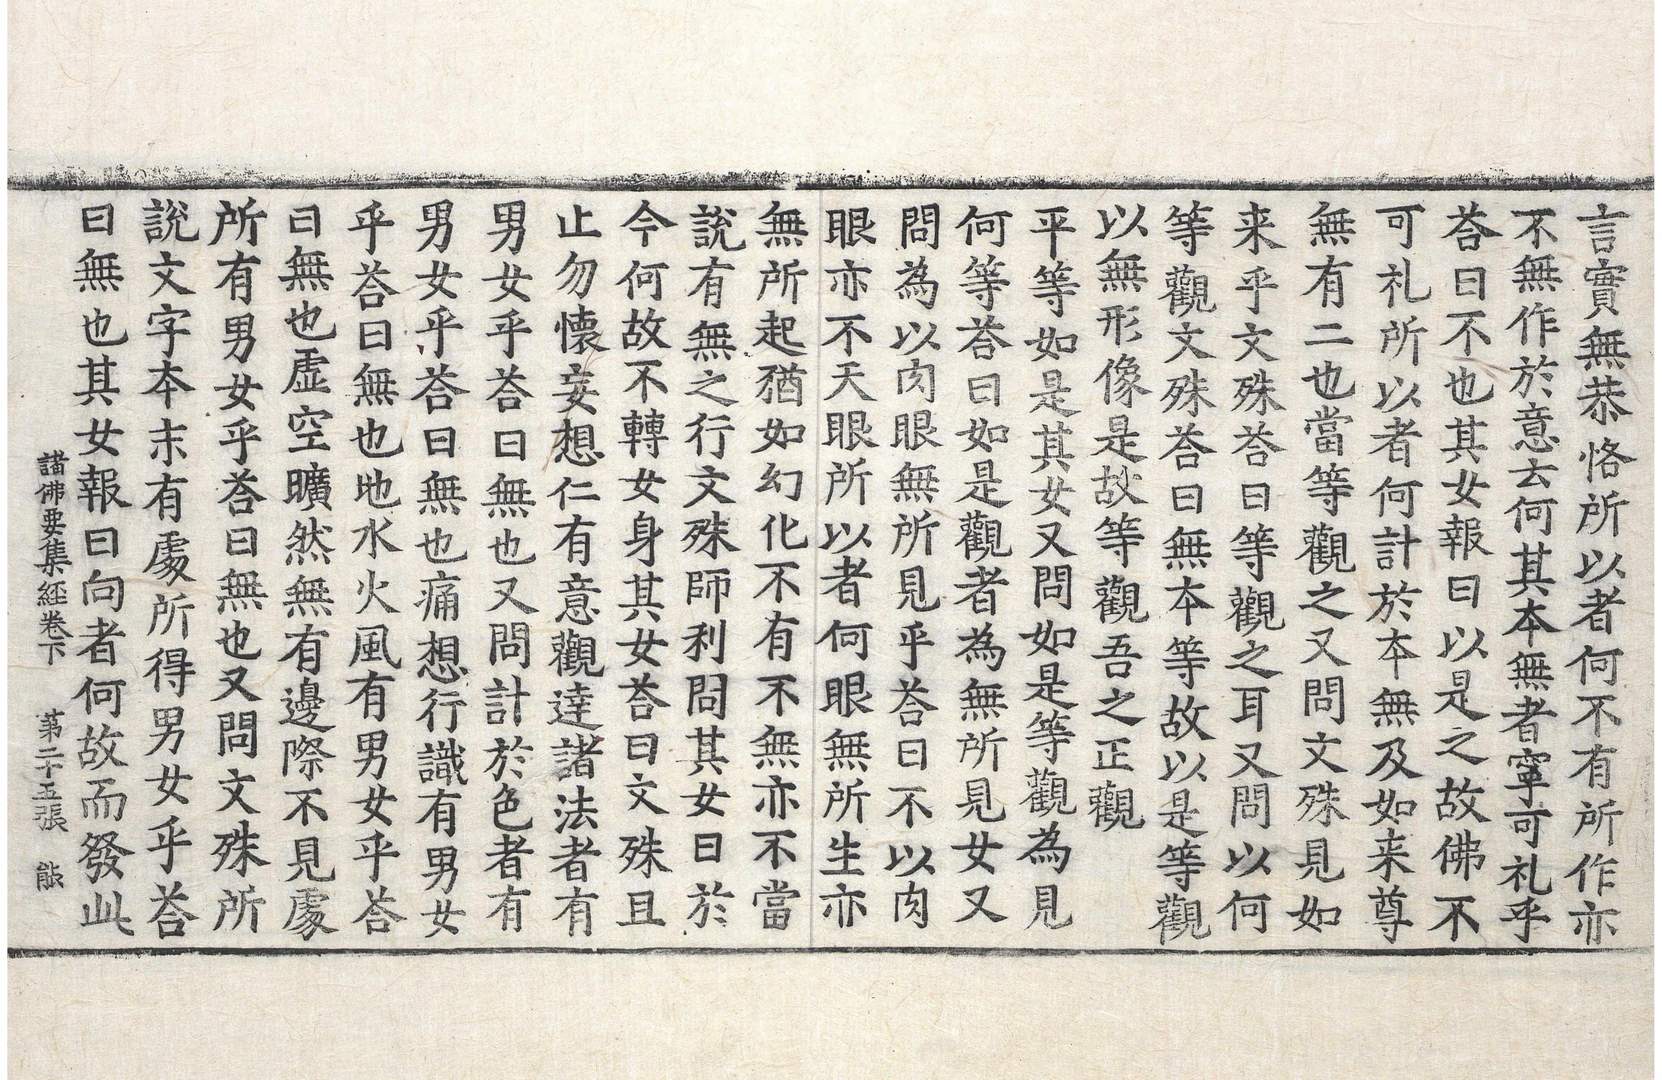 言實無恭恪所以者何不有所作亦
不無作於意云何其本無者寧可礼乎
荅曰不也其女報曰以是之故佛不
可礼所以者何計於本無及如来尊
無有二也當等觀之又問文殊見如
来乎文殊荅曰等觀之耳又問以何
等觀文殊荅曰無本等故以是等觀
以無形像是故等觀吾之正觀
平等如是其女又問如是等觀為見
何等荅曰如是觀者為無所見女又
問為以肉眼無所見乎荅曰不以肉
眼亦不天眼所以者何眼無所生亦
無所起猶如幻化不有不無亦不當
說有無之行文殊師利問其女曰於
今何故不轉女身其女荅曰文殊且
止勿懷妄想仁有意觀達諸法者有
男女乎荅曰無也又問計於色者有
男女乎荅曰無也痛想行識有男女
乎荅曰無也地水火風有男女乎荅
曰無也虛空曠然無有邊際不見處
所有男女乎荅曰無也又問文殊所
說文字本末有處所得男女乎荅
曰無也其女報曰向者何故而發此
諸佛要集經卷下 第二十五張